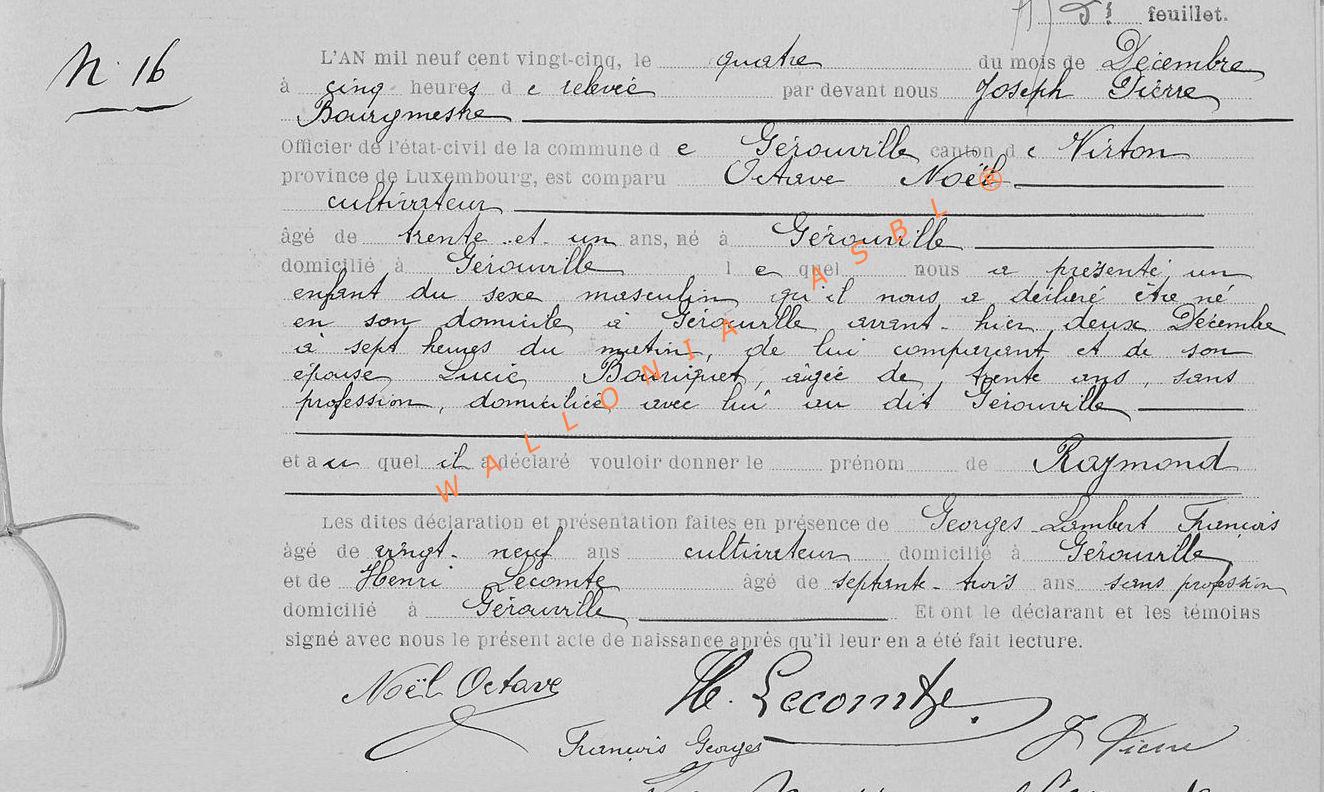 5e feuillet.
N. 16
L'AN mil neuf cent vingt-cinq, le quatre du mois de Décembre
à cinq heures de relevée par devant nous Joseph Pierre
Bourgmestre
Officier de l'état-civil de la commune de Gérouville canton de Virton
province de Luxembourg, est comparu Octave Noël
cultivateur
âgé de trente et un ans, né à Gérouville
domicilié à Gérouville lequel nous a présenté un
enfant du sexe masculin qu'il nous a déclaré être né
en son domicile à Gérouville avant-hier deux Décembre
à sept heures du matin, de lui comparant et de son
épouse Lucie Bouriquet, âgée de trente ans, sans
profession, domiciliée avec lui au dit Gérouville
et au quel il a déclaré vouloir donner le prénom de Raymond
Les dites déclaration et présentation faites en présence de Georges Lambert François
âgé de vingt-neuf ans cultivateur domicilié à Gérouville
et de Henri Lecomte âgé de septante-trois ans sans profession
domicilié à Gérouville Et ont le déclarant et les témoins
signé avec nous le présent acte de naissance après qu'il leur en a été fait lecture.
Noël Octave H. Lecomte
François Georges J Pierre
WALLONIA ASBL ®